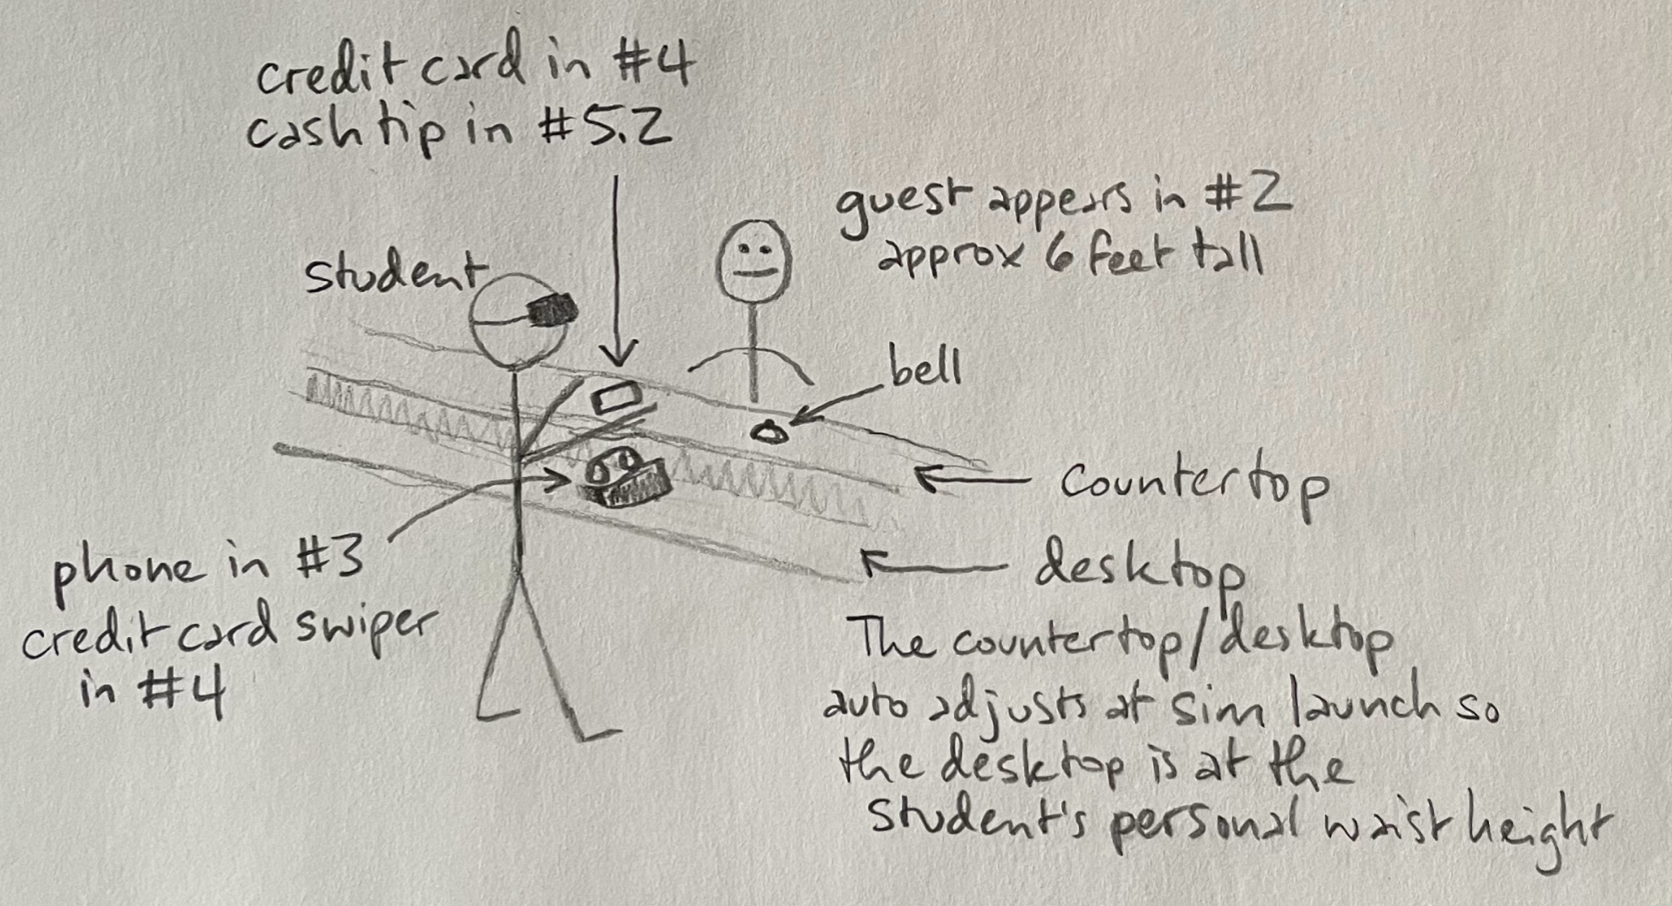 credit card in #4
cash tip in #5.2
guest appears in #2
approx 6 feet tall
student
bell
countertop
phone in #3
credit card swiper
in #4
desktop
The countertop/desktop
auto adjusts at sim launch so
the desktop is at the
student's personal waist height